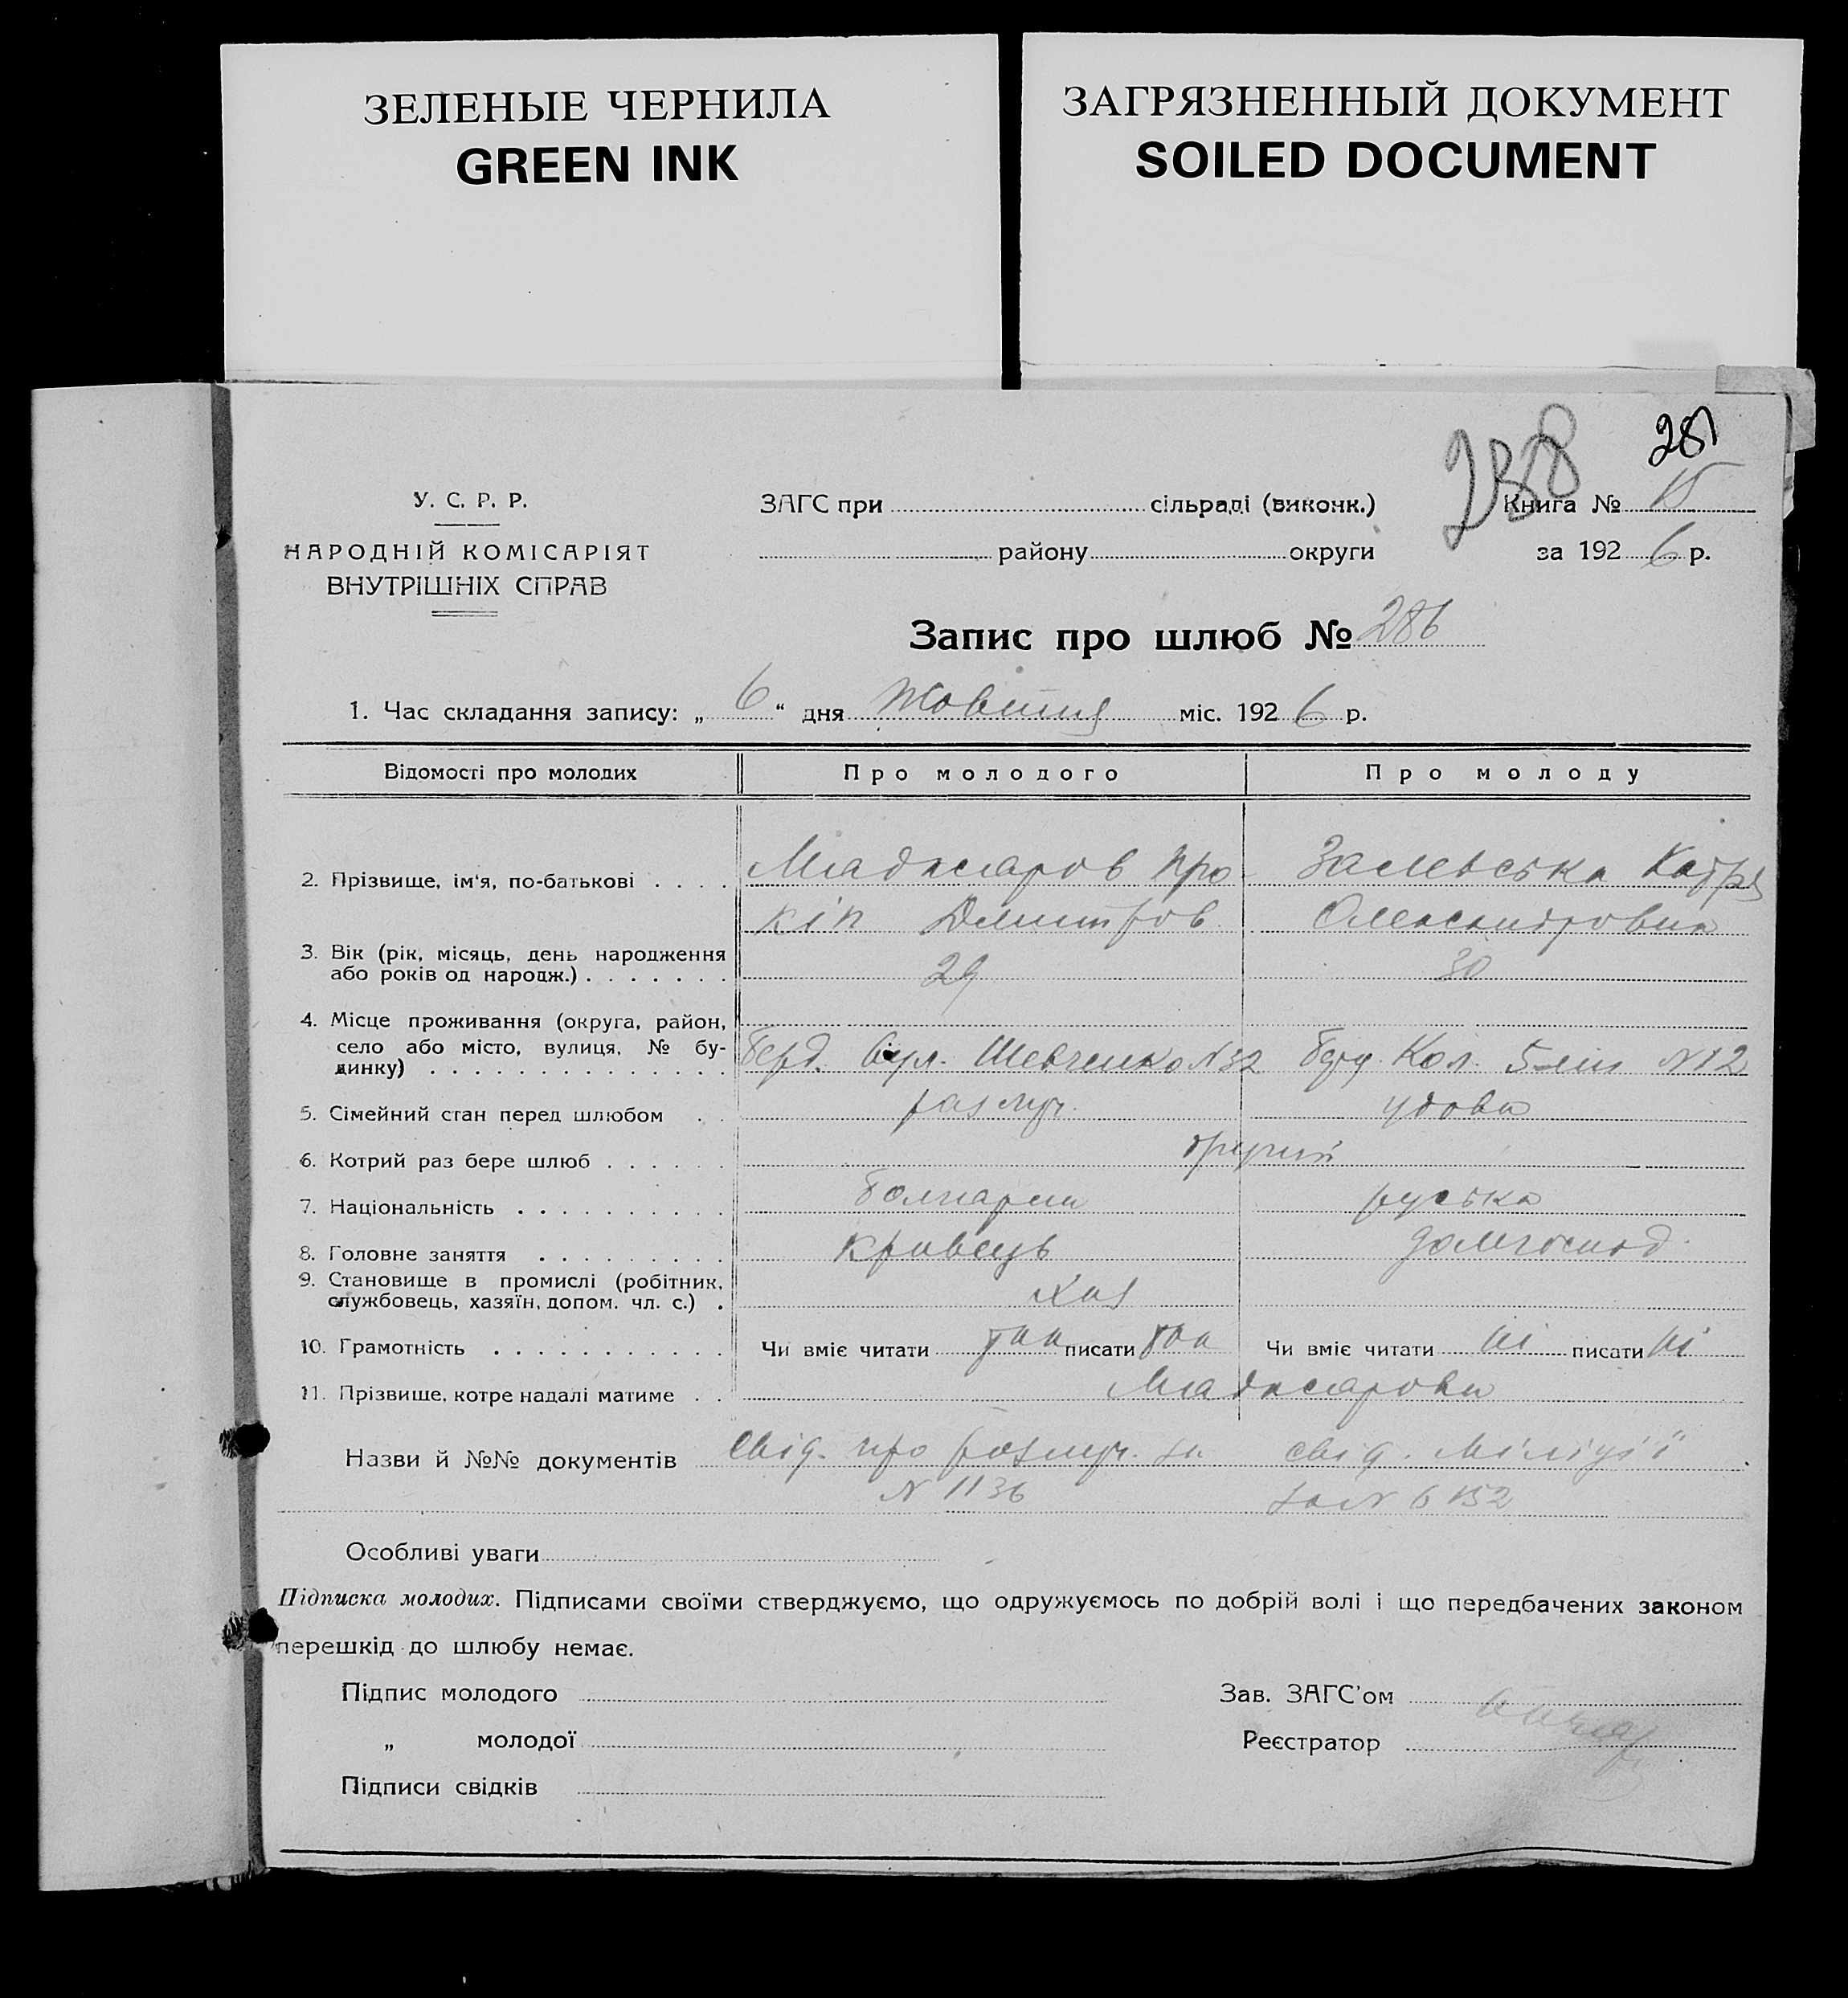 ЗЕЛЕНЫЕ ЧЕРНИЛА
GREEN INK
ЗАГРЯЗНЕННЫЙ ДОКУМЕНТ
SOILED DOCUMENT
288
У. С. Р. Р.
НАРОДНІЙ КОМІСАРІЯТ
ВНУТРІШНІХ СПРАВ
ЗАГС при сільраді (виконк.)
району округи
Книга № 15
за 1926 р.
Запис про шлюб № 286
1. Час складання запису: „6“ дня Жовтня міс. 1926 р.
Відомості про молодих Про молодого Про молоду
2. Прізвище, ім'я, по-батькові . . . . Про- Залевська Катря
кіп Дмитров. Олександровна
3. Вік (рік, місяць, день народження
або років од народж.) . . . . . . . 29 30
4. Місце проживання (округа, район,
село або місто, вулиця, № бу-
динку) . . . . . . . . . . . . . . Берд. вул. Шевченко N 32 Кол. 5 лін N 12
5. Сімейний стан перед шлюбом . . разлуч. удова
6. Котрий раз бере шлюб . . . . . . другий
7. Національність . . . . . . . . . . болгарин руська
8. Головне заняття . . . . . . . . . кравець домгоспод.
9. Становище в промислі (робітник,
службовець, хазяїн, допом. чл. с.) . хаз
10. Грамотність . . . . . . . . . . . Чи вміє читати так писати так Чи вміє читати ні писати ні
11. Прізвище, котре надалі матиме . .
Назви й №№ документів Свід. про разлуч. за свід. міліції
N 1136 за N 6152
Особливі уваги
Підписка молодих. Підписами своїми стверджуємо, що одружуємось по добрій волі і що передбачених законом
перешкід до шлюбу немає.
Підпис молодого Зав. ЗАГС'ом
„ молодої Реєстратор
Підписи свідків